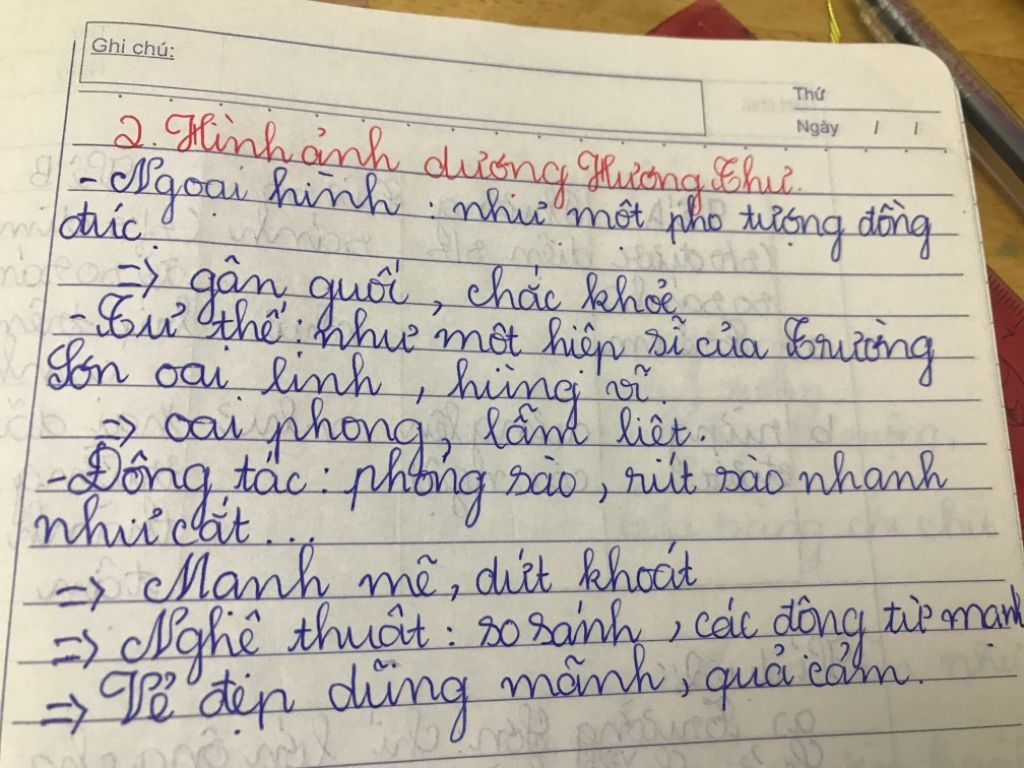 Ghi chú:
Thứ
Ngày / /
2. Hình ảnh dương Hương Thư.
- Ngoại hình : như một pho tượng đồng
đúc.
=> gân guốc, chắc khoẻ
- Tư thế : như một hiệp sĩ của Trường
Sơn oai linh, hùng vĩ.
=> oai phong, lẫm liệt.
- Động tác : phóng sào, rút sào nhanh
như cắt...
=> Mạnh mẽ, dứt khoát
=> Nghệ thuật : so sánh, các động từ mạnh
=> Vẻ đẹp dũng mãnh, quả cảm.